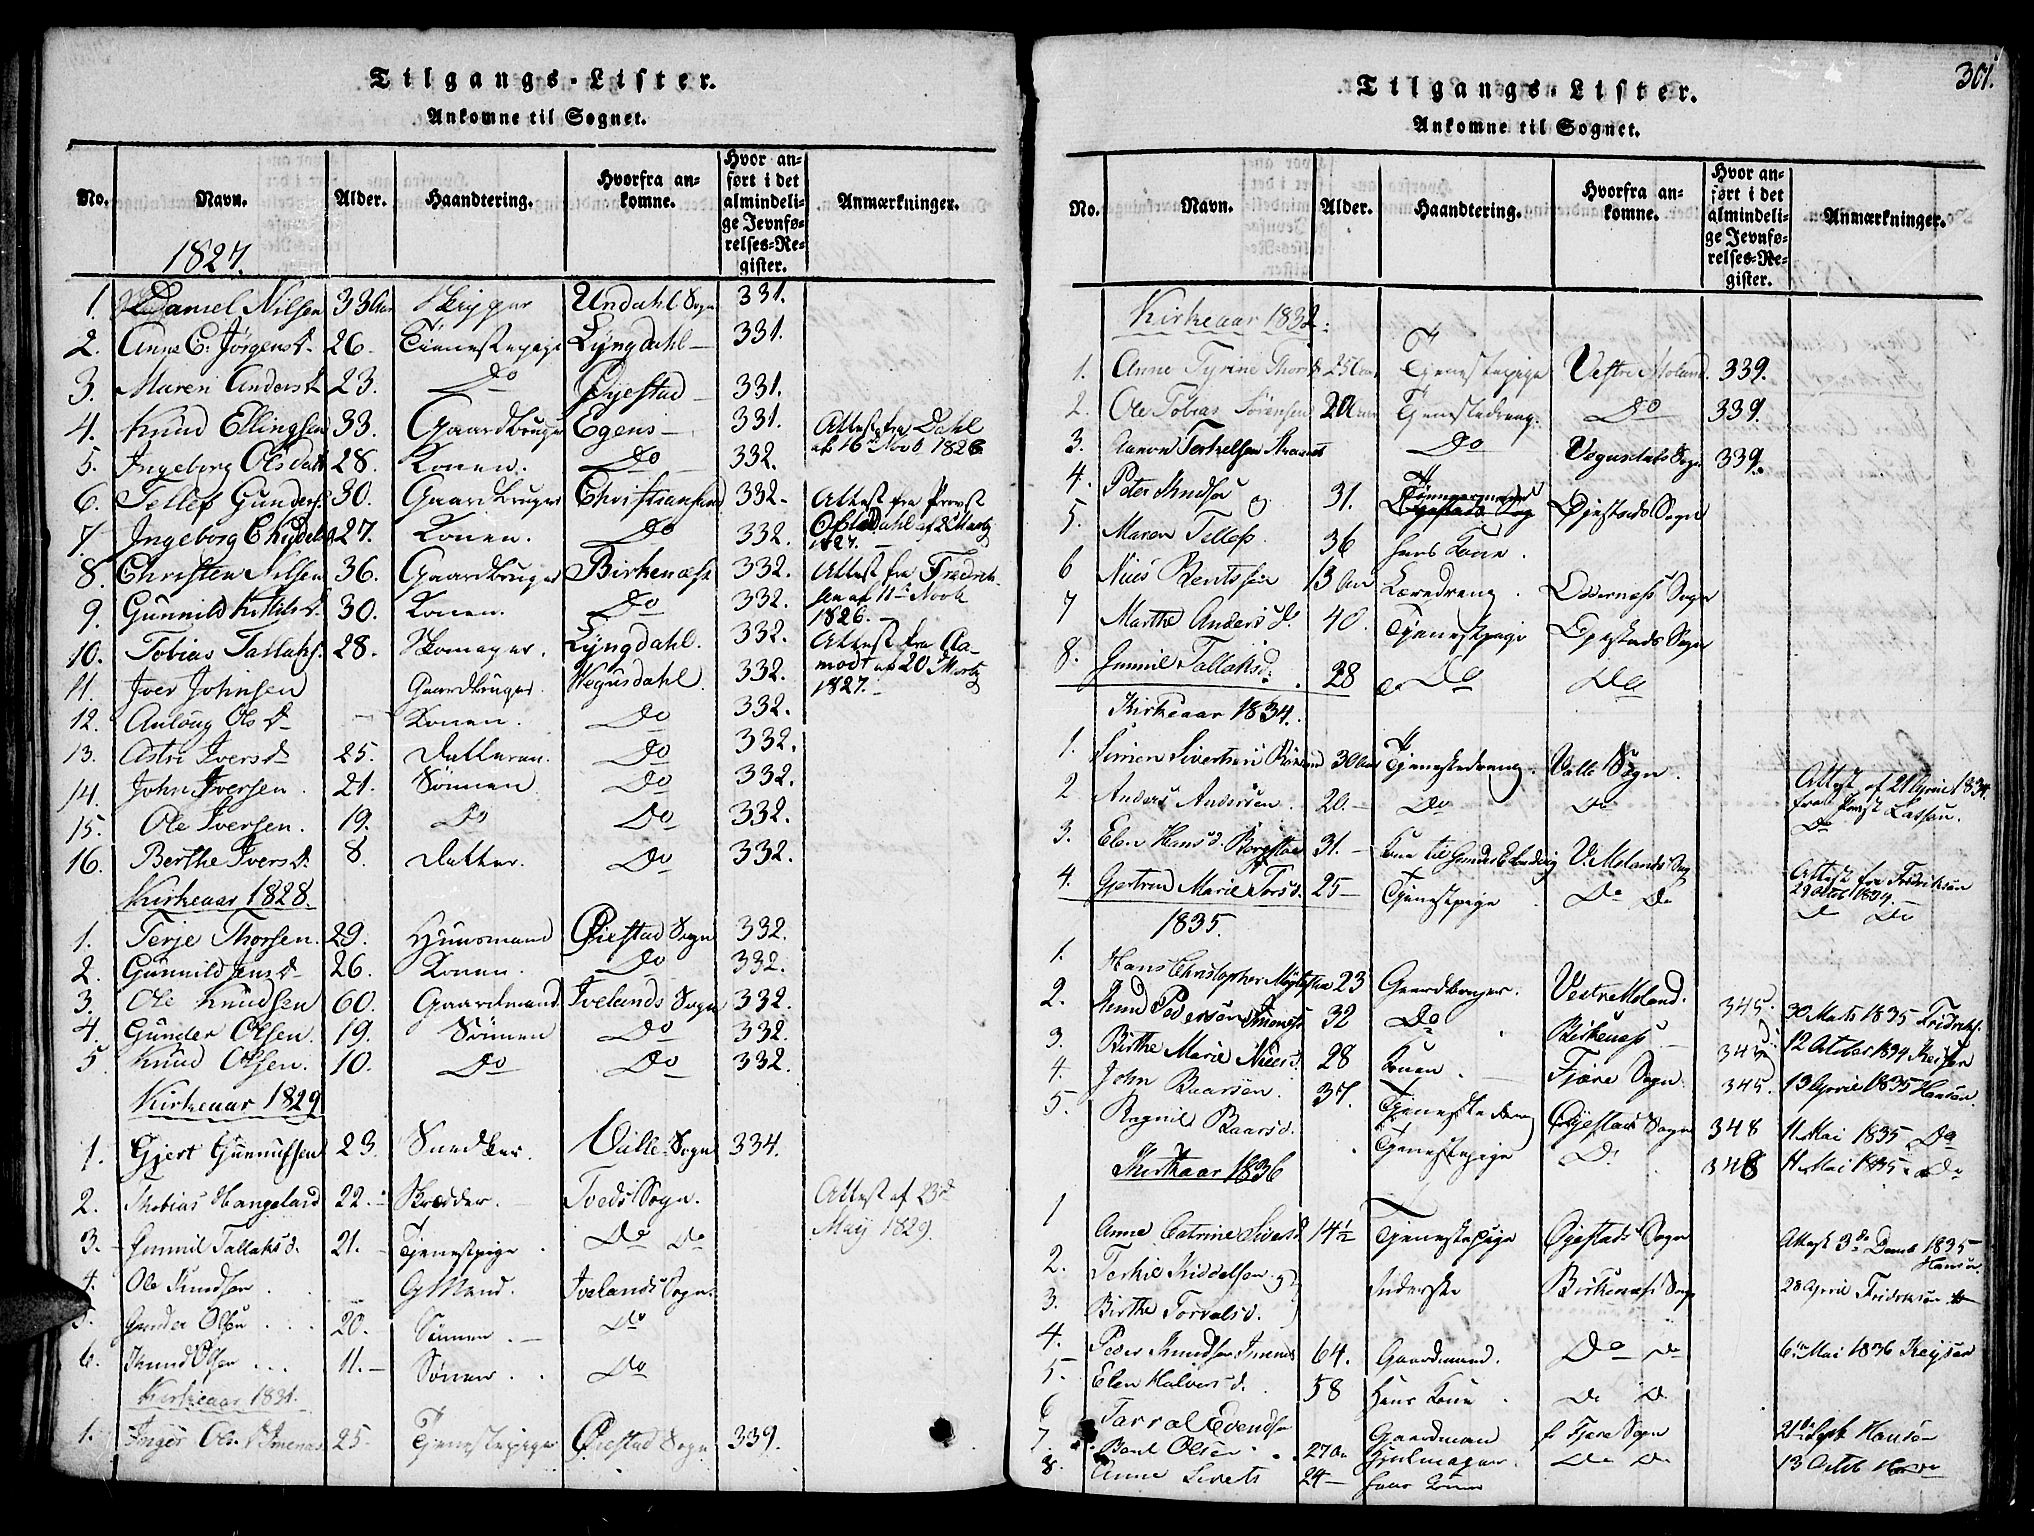 Tilgangs-Lister.
Ankomne til Sognet.
No. Navn. Alder. Haandtering. Hvorfra ankomne. Hvor anført i det almindelige Jevnførelses-Register. Anmærkninger.
1827.
1. Daniel Nilsen 33 Aar Skipper Undahl Sogn 331.
2. Anne E. Jørgensd. 26. Tienestepige Lyngdahl 331.
3. Maren Andersd. 23. Do Øyestad 331.
4. Knud Ellingsen 33. Gaardbruger Egens 331. Attest fra Dahl
5. Ingeborg Olsdatt 28. Konen. Do 332. af 16 Novb 1826
6. Tellef Gunders. 30. Gaardbruger Christiansand 332. Attest fra Provst
7. Ingeborg 27. Konen. Do 332. Oftedahl af 2 Martz 1827.
8. Christen Nilsen 36. Gaardbruger Birkenæss 332. Attest fra Fredrik-
9. Gunnild 30. Konen. Do 332. sen af 11 Novb 1826.
10. Tobias Tallaks. 28. Skomager. Lyngdahl. 332. Attest fra Aa-
11. Iver Johnsen Gaardbruger. Wegusdahl. 332. modt af 20 Martz 1827.
12. Anloug Olsd. Konen. Do 332.
13. Astri Iversd. 25. Datteren. Do 332.
14. John Iversen. 21. Sønnen Do 332.
15. Ole Iversen. 19. Do Do 332.
16. Berthe Iversd. 8. Datter. Do 332.
Kirkeaar 1828.
1. Terje Thorsen. 29. Huusmand Øiestad Sogn 332.
2. Gunnild Jensd. 26. Konen. Do 332.
3. Ole Knudsen 60. Gaardmand Ivelands Sogn 332.
4. Gunder Olsen. 19. Sønnen Do 332.
5. Knud Olsen. 10. Do Do 332.
Kirkeaar 1829
1. Gjert Gunnufsen 23. Snedker Valle Sogn 334.
2. Thobias Haugeland 22. Skrædder. Tveds Sogn. Attest af 23d
3. Gunnil Tallaksd. 21. Tjenestpige Do Do May 1829.
4. Ole Knudsen GMand. Ivelands Sogn.
5. Gunder Olsen 20. Sønnen. Do
6. Knud Olsen 11. Sønnen. Do
Kirkeaar 1831.
1. Inger Ols. Imenæs 25. Tjenestepige Øiestad Sogn 339.
301.
Tilgangs-Lister.
Ankomne til Sognet.
No. Navn. Alder. Haandtering. Hvorfra ankomne. Hvor anført i det almindelige Jevnførelses-Register. Anmærkninger.
Kirkeaar 1832.
1. Anne Tyrine Thorsd 25 Aar Tjenestepige Vestre Moland 339.
2. Ole Tobias Sørensen 20 Aar Tjenestedreng. Do 339.
3. Aanon Terkelsen Do Vegusdals Sogn 339.
4. Peter Knudsen og 31. Øjestads Sogn
5. Maren Tellefs. 36 hans Kone.
6 Niels Bentsen 13 Aar Læredreng. Oddernæss Sogn
7 Marthe Andersd. 40. Tjenestpige Øjestads Sogn
8. Gunnil Tallaksd. 28 Do Do
Kirkeaar 1834.
1. Simon Sivertsen 30 Aar Tjenestedreng. Valle Sogn. Attest af 21 April 1834
2 Anders Andersen. 20. Do Do fra Provst Lassen. Do
3. Elen Hansd. 31. Kone til Gunder V. Molands Sog Attest fra Fredriksen
4. Gjertrud Marie Torsd. 25 Tjenestpige Do Do 29 Octob 1834. Do Do
1835.
1. Hans Christopher 23 Gaardbruger. Vestre Moland. 345. 30 Marts 1835 Fridriks.
2. Knud Pedersen Imenæs 32 Do Birkenæs. 345 12 October 1834 Keyser
3. Birthe Marie Nielsd. 28 Konen. Fjære Sogn. 345. 13 April 1835 Hansen.
4. John Baarsen. 37. Tjenestedreng Øyestads Sogn 348 11 Mai 1835 Do
5. Ragnil Baarsd. Tjenestepige Do 348 11 Mai 1835 Do
Kirkaar 1836
1 Anne Catrine Sivers d 14½ Tjenestepige Øyestads Sogn Attest 3de Decemb 1835 Hansen.
2. Terkil Kiddelsen og Inderste Birkenæs Sogn 28 April Fridriksen
3. Birthe Torvalsd.
4. Peder Knudsen Imenæs 64. Gaardmand. Do Do 6 Mai 1836 Keyser
5. Elen Halversd. 58 Hans Kone Do Do
6 Tarral Evendsen Gaardmand f Fjære Sogn 21de Septb Hansen
7. Bent Olsen 27 Aar Hjulmager. Do Do 13 Octob
8. Anne Sivets 24 hans Kone